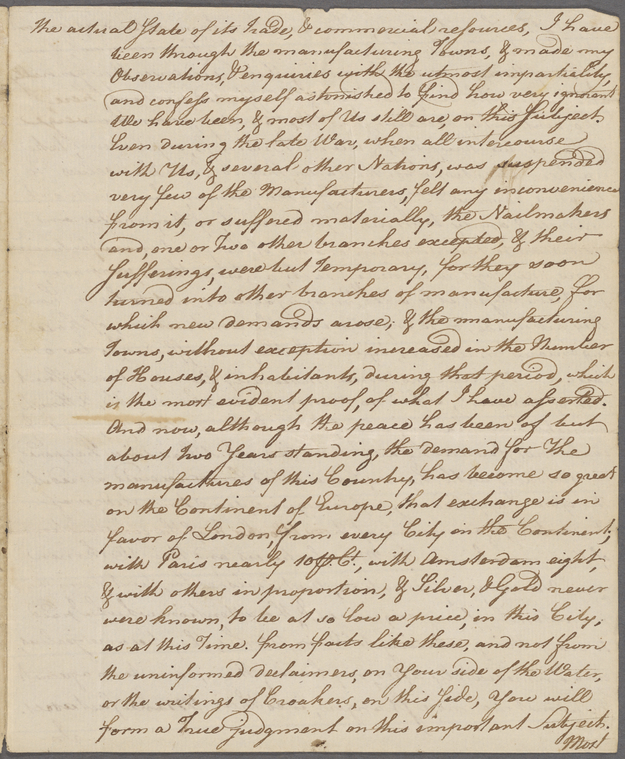 the actual State of its Trade, & commercial resources, I have
been through the manufacturing Towns, & made my
Observations, & enquiries with the utmost impartiality,
and confess myself astonished to find how very ignorant
We have been, & most of Us still are, on this Subject.
Even during the late War, when all intercourse
with Us, & several other Nations, was suspended
very few of the Manufacturers, felt any inconvenience
from it, or suffered materially, the Nailmakers
and, one or Two other branches excepted, & their
Sufferings, were but Temporary, for they soon
turned into other branches of manufacture, for
which new demands arose, & the manufacturing
Towns, without exception increased in the Number
of Houses, & inhabitants, during that period, which
is the most evident proof, of what I have asserted.
And now, although the peace has been of but
about Two Years standing, the demand for The
manufactures of this Country, has become so great
on the Continent of Europe, that exchange is in
favor of London, from every City on the Continent,
with Paris nearly 10 pr. Ct., with Amsterdam eight,
& with others in proportion, & Silver, & Gold never
were known, to be at so low a price, in this City,
as at this Time. from facts like these, and not from
the uninformed declaimers, on Your side of the Water,
or the writings of Croakers, on this Side, You will
form a True judgment on this important Subject.
Most